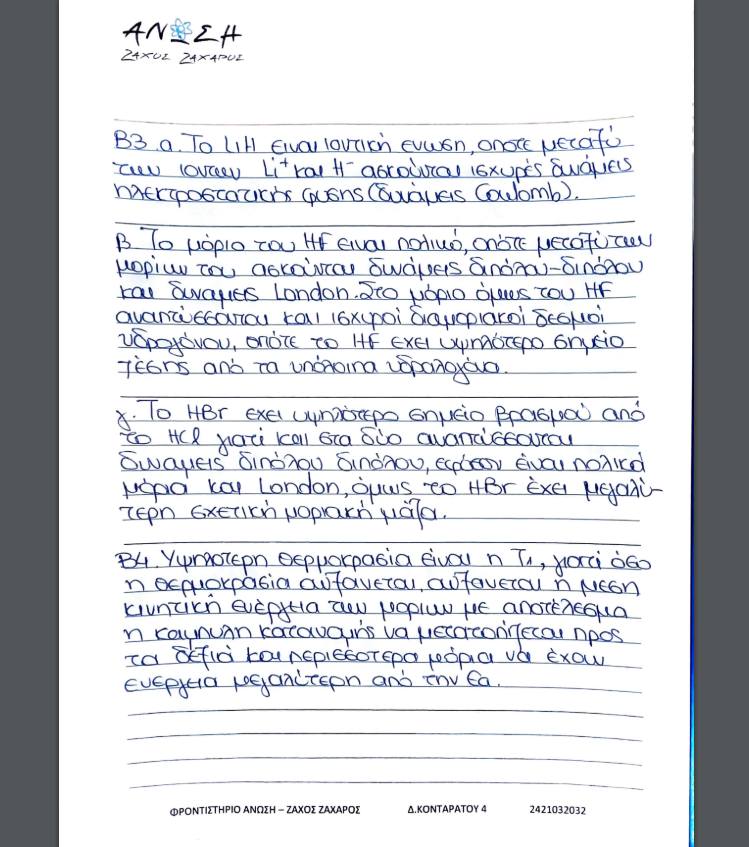 ΑΝΩΣΗ
ΖΑΧΟΣ ΖΑΧΑΡΟΣ
Β3. α. Το LiH ειναι ιοντική ενωση, οποτε μεταξύ
των ιοντων Li⁺ και H⁻ ασκούνται ισχυρές δυνάμεις
ηλεκτροστατικής φυσης (δυνάμεις Coulomb).
β. Το μόριο του HF ειναι πολικό, οπότε μεταξύ των
μορίων του ασκούνται δυνάμεις διπόλου-διπόλου
και δυναμεις London. Στο μόριο όμως του HF
αναπτύσσονται και ισχυροί διαμοριακοί δεσμοί
υδρογόνου, οπότε το HF έχει υψηλότερο σημείο
ζέσης από τα υπόλοιπα υδραλογόνα.
γ. Το HBr έχει υψηλότερο σημείο βρασμού από
το HCl γιατί και στα δύο αναπτύσσονται
δυναμεις διπόλου διπόλου, εφόσον είναι πολικά
μόρια και London, όμως το HBr έχει μεγαλύ-
τερη σχετική μοριακή μάζα.
Β4. Υψηλοτερη θερμοκρασία είναι η T₁, γιατί όσο
η θερμοκρασία αυξανεται, αυξανεται η μεση
κινητική ενέργεια των μοριων με αποτέλεσμα
η καμπυλη κατανομής να μετατοπίζεται προς
τα δεξιά και περισσοτερα μόρια να έχουν
ενεργεια μεγαλύτερη από την Εα.
ΦΡΟΝΤΙΣΤΗΡΙΟ ΑΝΩΣΗ – ΖΑΧΟΣ ΖΑΧΑΡΟΣ Δ.ΚΟΝΤΑΡΑΤΟΥ 4 2421032032